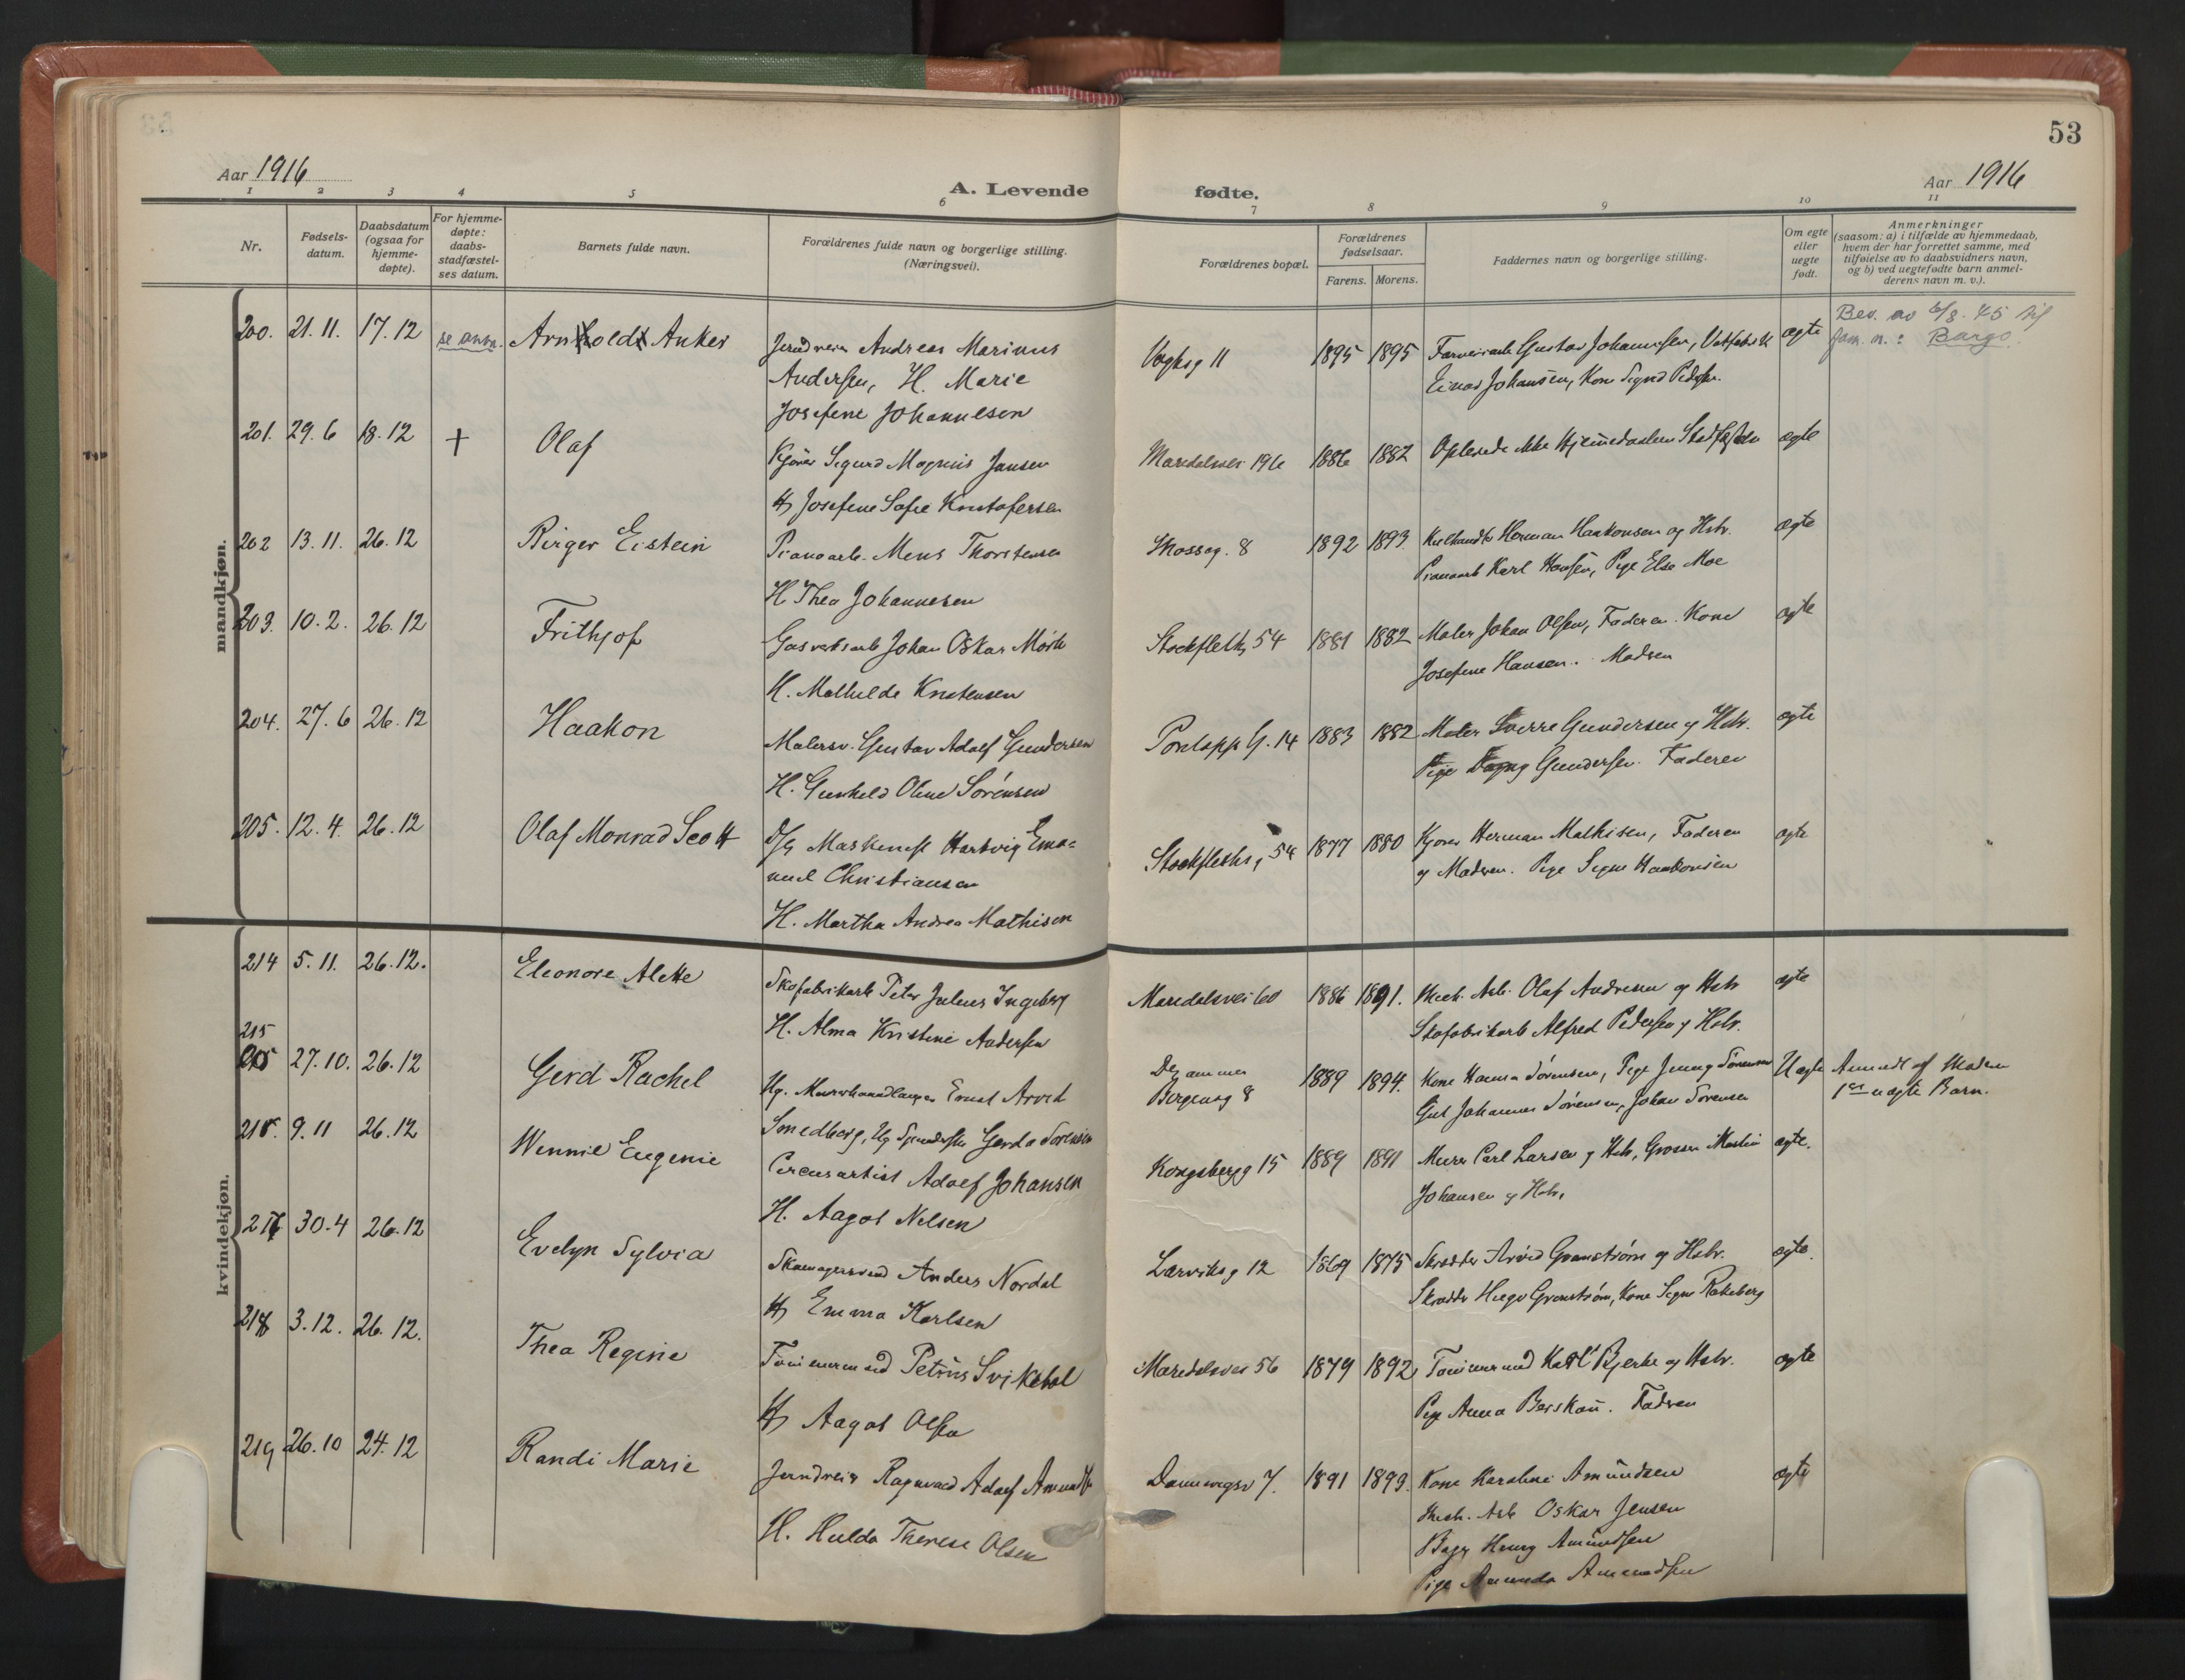 53
Aar 1916
Aar 1916
A. Levende fødte.
1 2 3 4 5 6 7 8 9 10 11
Nr.
Fødsels-
datum.
Daabsdatum
(ogsaa for
hjemme-
døpte).
For hjemme-
døpte:
daabs-
stadfæstel-
ses datum.
Barnets fulde navn.
Forældrenes fulde navn og borgerlige stilling.
(Næringsvei).
Forældrenes bopæl.
Forældrenes
fødselsaar.
Farens. Morens.
Faddernes navn og borgerlige stilling.
Om egte
eller
uegte
født.
Anmerkninger
(saasom: a) i tilfælde av hjemmedaab,
hvem der har forrettet samme, med
tilføielse av to daabsvidners navn,
og b) ved uegtefødte barn anmel-
derens navn m. v.).
mandkjøn.
200. 21.11. 17.12 se anm. Arnold Anker
Andreas Marinus
Andersen, H. Marie
Josefine Johannesen
Vogtsg 11 1895 1895 Gustav Johannesen,
Einar Johansen, Kone Signe Pedersen
ægte
Bev. av 6/8. 45 til
fam. n.: Bargo.
201. 29.6 18.12 + Olaf
Kjører Sigurd Magnus Jansen
H Josefine Sofie Kristofersen
Maridalsvei 196 1886 1882 Oplevede ikke Hjemmedaabens Stadfæstelse
ægte
202 13.11. 26.12 Birger Eistein
Pianoarb. Mens Thorstensen
H Thea Johannesen
Mosseg. 8 1892 1893. Kulhandler Herman Haakonsen og Hstr.
Pianoarb Karl Hansen, Pige Else Moe
ægte
203. 10.2. 26.12 Frithjof
Gasverksarb Johan Oskar Mørk
H. Mathilde Kristensen
Stockflethg 54 1881 1882 Maler Johan Olsen, Faderen. Kone
Josefine Hansen. Modren
ægte
204. 27.6 26.12 Haakon
Malersv. Gustav Adolf Gundersen
H. Gunhild Oline Sørensen
G. 14 1883 1882 Maler Sverre Gundersen og Hstr.
Pige Dagny Gundersen. Faderen
ægte
205. 12.4. 26.12 Olaf Monrad Scott
Maskinist Hartvig Ema=
nuel Christiansen
H. Martha Andrea Mathisen
Stockflethsg 54 1877 1880 Kjører Herman Mathisen, Faderen
og Moderen. Pige Signe Haakonsen
ægte
kvindekjøn.
214 5.11. 26.12. Eleonore Alette
Skofabrikarb Peter Julius Ingeberg
H. Alma Kristine Andersen
Maridalsvei 60 1886 1891. Mek. Arb. Olaf Andresen og Hstr
Skofabrikarb Alfred Pedersen og Hstr.
ægte
215 27.10. 26.12 Gerd Rachel
Ug. Murerhaandlanger Ernst Arvid
Smedberg, Ug Gerda Sørensen
Bergensg 8 1889 1894. Kone Hanna Sørensen, Pige Jenny Sørensen
Gut Johannes Sørensen, Johan Sørensen
Uægte
Anmeldt af Moderen
1ste uægte Barn.
216. 9.11 26.12 Wennie Eugenie
Circusartist Adolf Johansen
H. Aagot Nilsen
Kongsbergg 15 1889 1891 Murer Carl Larsen og Hstr, Grosser Martin
Johansen og Hstr.
ægte.
217 30.4 26.12 Evelyn Sylvia
Skomagersvend Anders Nordal
H Emma Karlsen
Larviksg 12 1869 1875 Skrædder Arvid Granstrøm og Hstr.
Skrædder Hugo Granstrøm, Kone Signe Rakeberg
ægte.
218 3.12. 26.12. Thea Regine
Tømmermand Petrus Svikebøl
H Aagot Olsen
Maridalsvei 56 1879 1892 Tømmermand Karl Bjerke og Hstr.
Pige Anna Faderen
ægte
219 26.10 24.12 Randi Marie
Ragnvald Adolf Amundsen
H. Hulda Therese Olsen
Dannevigsv 7. 1891 1899. Kone Karoline Amundsen
Mek. Arb Oskar Jensen
Henry Amundsen
Pige Amanda Amundsen
ægte